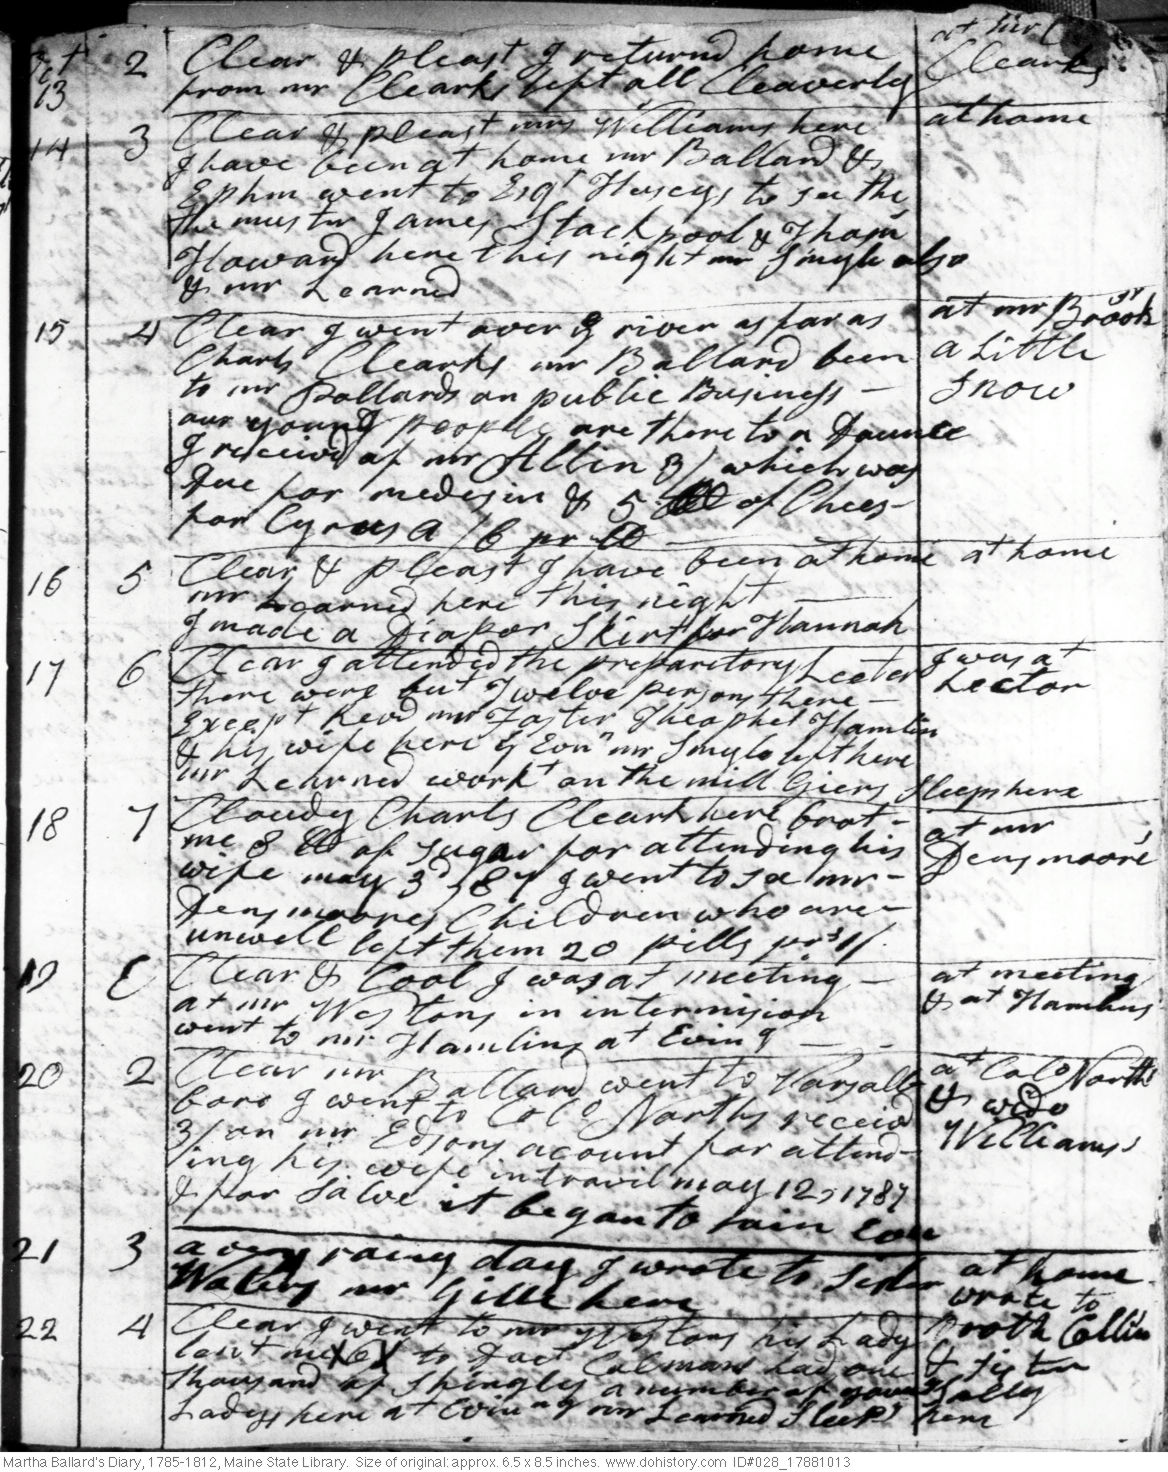 at mr
oct 2 Clear & pleast I returnd home Clearks
13 from mr Clearks left all Cleaverly
14 3 Clear & pleast mrs Williams here at home
I have been at home mr Ballard &
Ephm went to Esqr Huseys to see the
the muster James Stackpool & Thoms
Howard here this night mr Smyle also
& mr Learned
15 4 Clear I went over ye river as far as at mr Brooks
Charls Clearks mr Ballard been a Little
to mr Pollards on public Business – Snow
our young people are there to a Daunce
I received of mr Allin 3/ which was
Due for medesin & 5 lb of Chees–
for Cyrus a /6 pr lb
16 5 Clear & pleast I have been at home at home
mr Learned here this night
I made a Diaper Skirt for Hannah
17 6 Clear I attended the preparitory Lector I was at
there were but Twelve persons there – Lector
except Revd mr Foster Theophels Hamlin
& his wife here ye Evn mr Smyle left here
mr Learned workt on the mill Giers Sleep here
18 7 Cloudy Charls Cleark here brot– at mr
me 8 lb of Sugar for attending his Densmoors
wife may 3d 87 I went to see mr–
Densmoores Children who are–
unwell left them 20 pills prs 1/.
19 E Clear & Cool I was at meeting – at meeting
at mr Westons in intermision & at Hamlins
went to mr Hamlins at Evining
20 2 Clear mr Ballard went to Varsalb at Colo Norths
boro I went to Colo Norths receivd & wido
3/ on mr Edsons acount for attend– Williams's
ing his wife in travil may 12, 1787
& for Salve it began to rain Evn
21 3 a very rainy day I wrote to Sister at home
Waters mr Gille here wrote to
22 4 Clear I went to mr Westons his Lady Broth Collins
lent me 6/ to Doct Colman had one & sister
thousand of Shingles a number of young Dolly
Ladys here at Evining mr Learned Sleeps here
Martha Ballard's Diary, 1785-1812, Maine State Library. Size of original: approx. 6.5 x 8.5 inches. www.dohistory.com ID#028_17881013